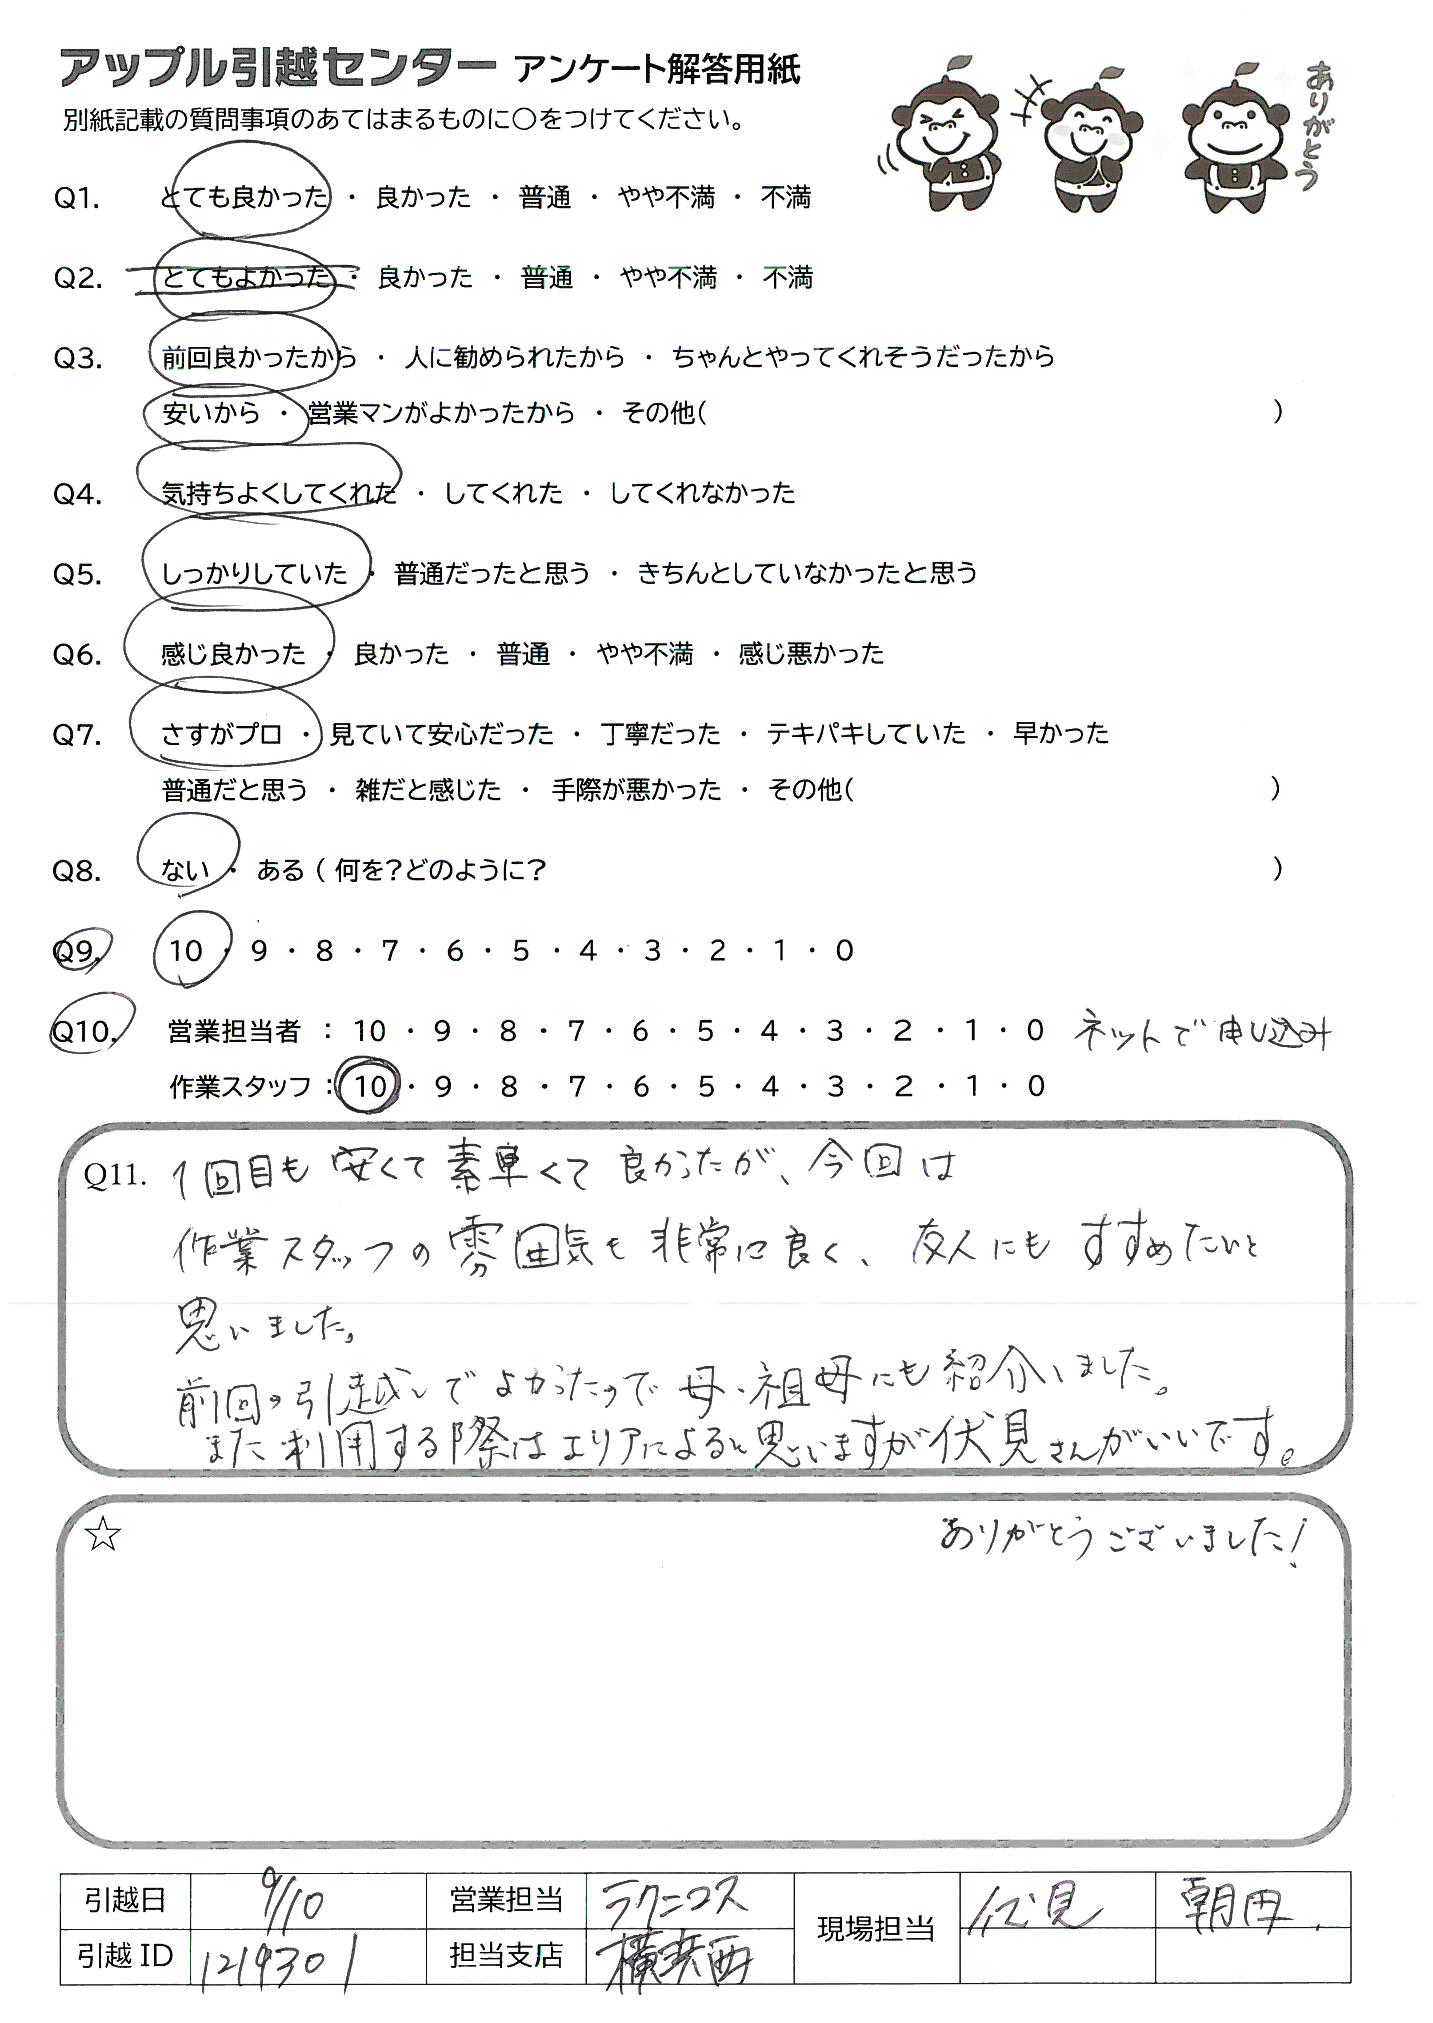 アップル引越センター アンケート解答用紙
ありがとう
別紙記載の質問事項のあてはまるものに○をつけてください。
Q1. とても良かった ・ 良かった ・ 普通 ・ やや不満 ・ 不満
Q2. とてもよかった ・ 良かった ・ 普通 ・ やや不満 ・ 不満
Q3. 前回良かったから ・ 人に勧められたから ・ ちゃんとやってくれそうだったから
安いから ・ 営業マンがよかったから ・ その他( )
Q4. 気持ちよくしてくれた ・ してくれた ・ してくれなかった
Q5. しっかりしていた ・ 普通だったと思う ・ きちんとしていなかったと思う
Q6. 感じ良かった ・ 良かった ・ 普通 ・ やや不満 ・ 感じ悪かった
Q7. さすがプロ ・ 見ていて安心だった ・ 丁寧だった ・ テキパキしていた ・ 早かった
普通だと思う ・ 雑だと感じた ・ 手際が悪かった ・ その他( )
Q8. ない ・ ある ( 何を?どのように? )
Q9. 10 ・ 9 ・ 8 ・ 7 ・ 6 ・ 5 ・ 4 ・ 3 ・ 2 ・ 1 ・ 0
Q10. 営業担当者 : 10 ・ 9 ・ 8 ・ 7 ・ 6 ・ 5 ・ 4 ・ 3 ・ 2 ・ 1 ・ 0 ネットで申し込み
作業スタッフ : 10 ・ 9 ・ 8 ・ 7 ・ 6 ・ 5 ・ 4 ・ 3 ・ 2 ・ 1 ・ 0
Q11. 1回目も安くて素早くて良かったが、今回は
作業スタッフの雰囲気も非常に良く、友人にもすすめたいと
思いました。
前回の引越しでよかったので母・祖母にも紹介しました。
また利用する際はエリアによると思いますが伏見さんがいいです。
☆ ありがとうございました!
引越日 9/10 営業担当 ラクニコス 現場担当 伏見 朝田
引越 ID 1219301 担当支店 横浜西